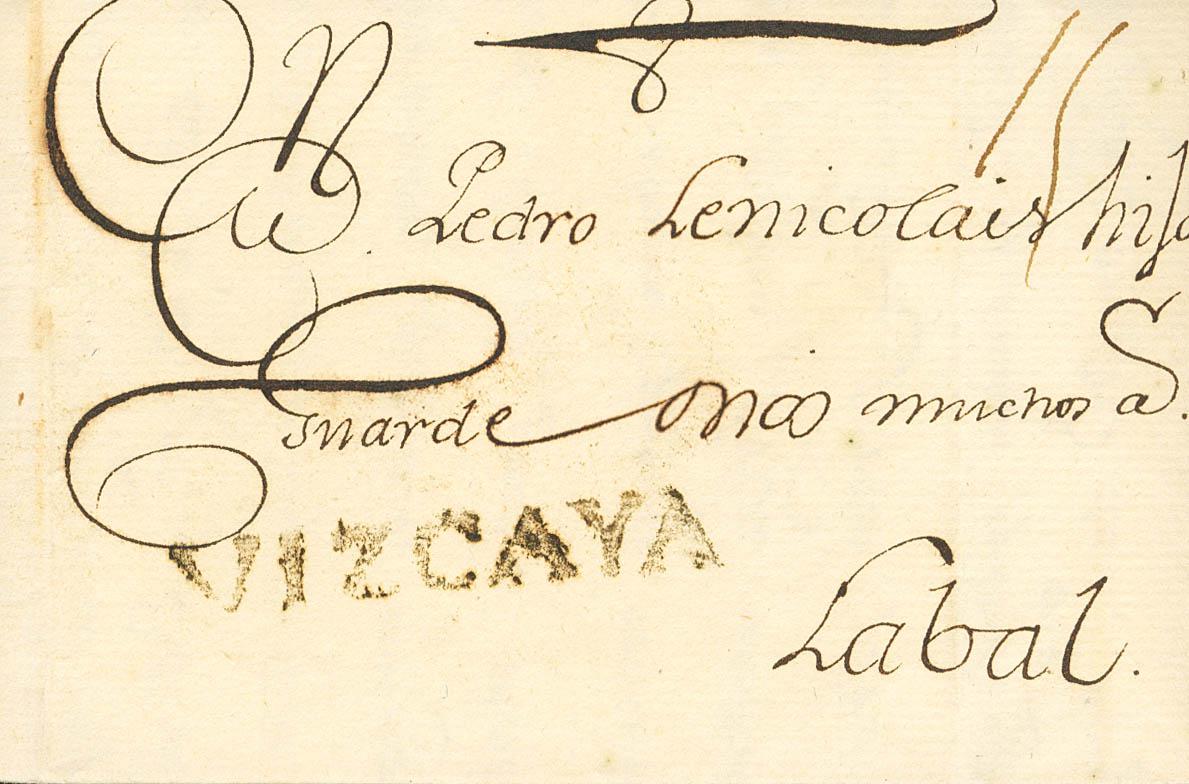 Pedro Lenicolais hijo
Guarde muchos a.
VIZCAYA
Labal.